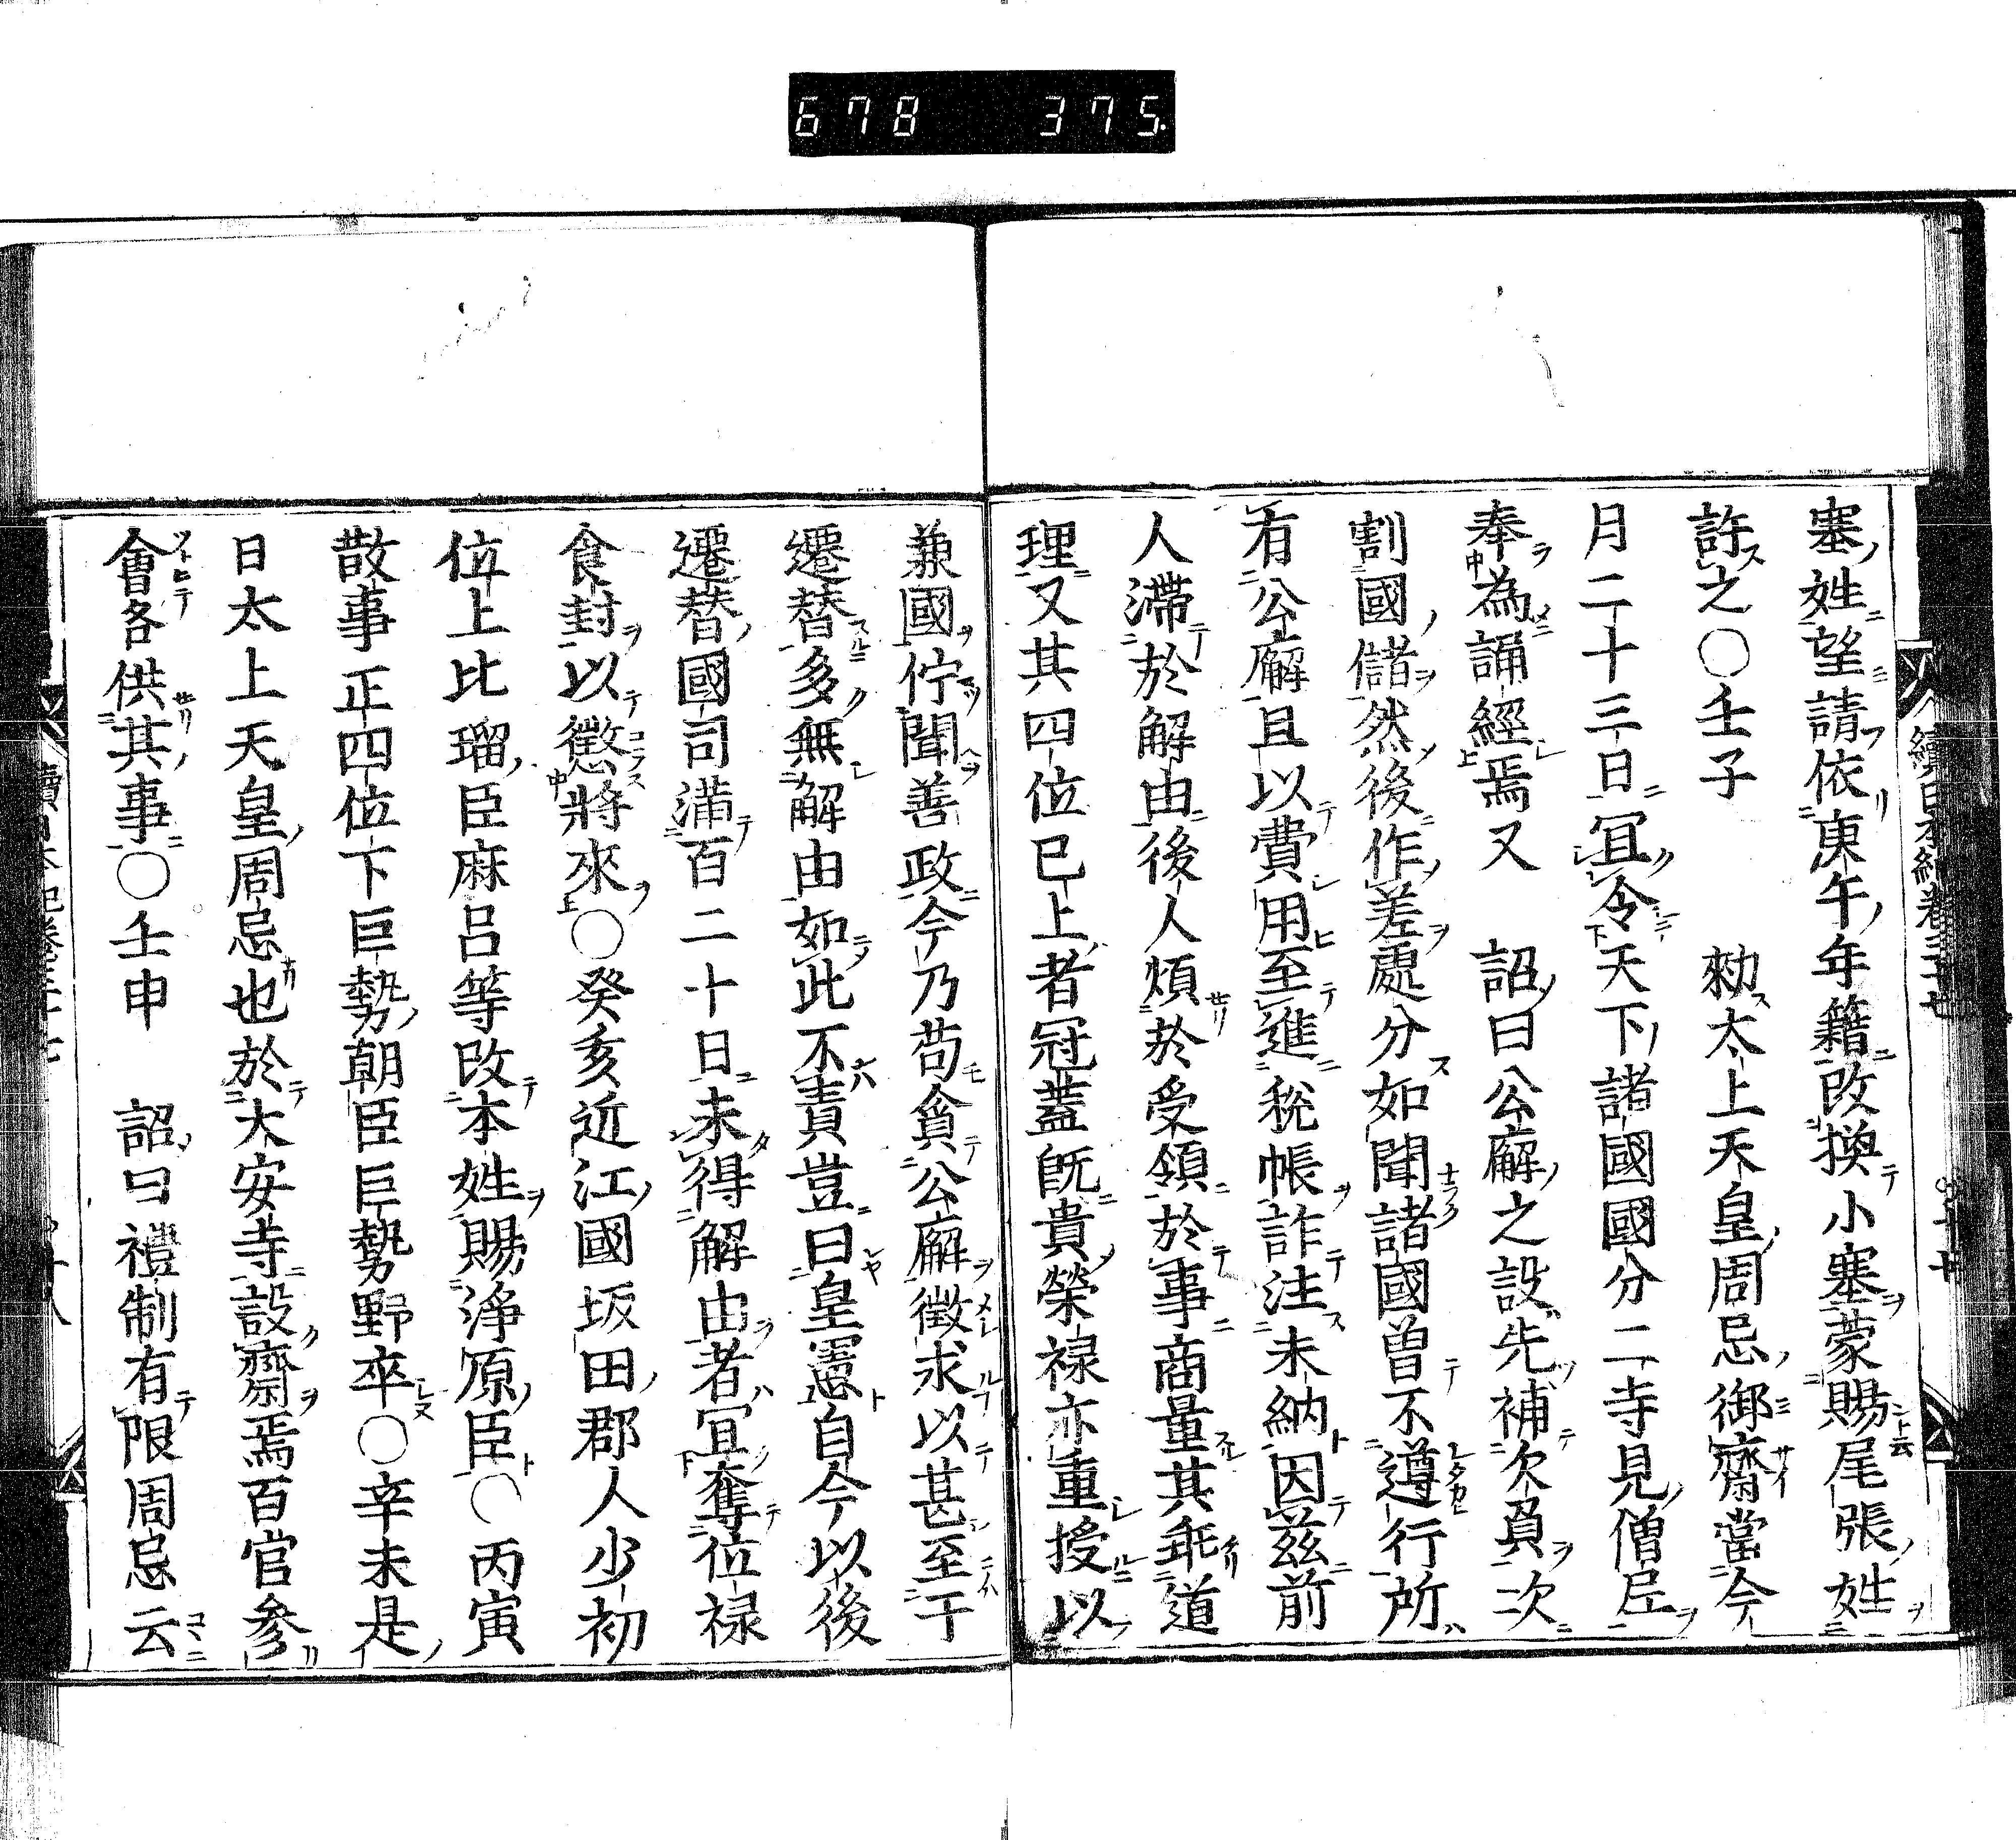 678 375.
塞姓望請依庚午年籍改換小塞蒙賜尾張姓
許之○壬子 勑太上天皇周忌御齋當今
月二十三日冝令天下諸國國分二寺見僧尼
奉為誦經焉又 詔曰公廨之設先補欠負次
割國儲然後作差處分如聞諸國曽不遵行所
有公廨且以費用至進税帳詐注未納因茲前
人滯於解由後人煩於受領於事商量其乖道
理又其四位已上者冠蓋既貴榮禄亦重授以
兼國佇聞善政今乃苟貪公廨徵求以甚至于
遷替多無解由如此不責豈曰皇憲自今以後
遷替國司滿百二十日未得解由者冝奪位禄
食封以懲將來○癸亥近江國坂田郡人少初
位上比瑠臣麻呂等改本姓賜淨原臣○丙寅
散事正四位下巨勢朝臣巨勢野卒○辛未是
日太上天皇周忌也於大安寺設齋焉百官参
會各供其事○壬申 詔曰禮制有限周忌云